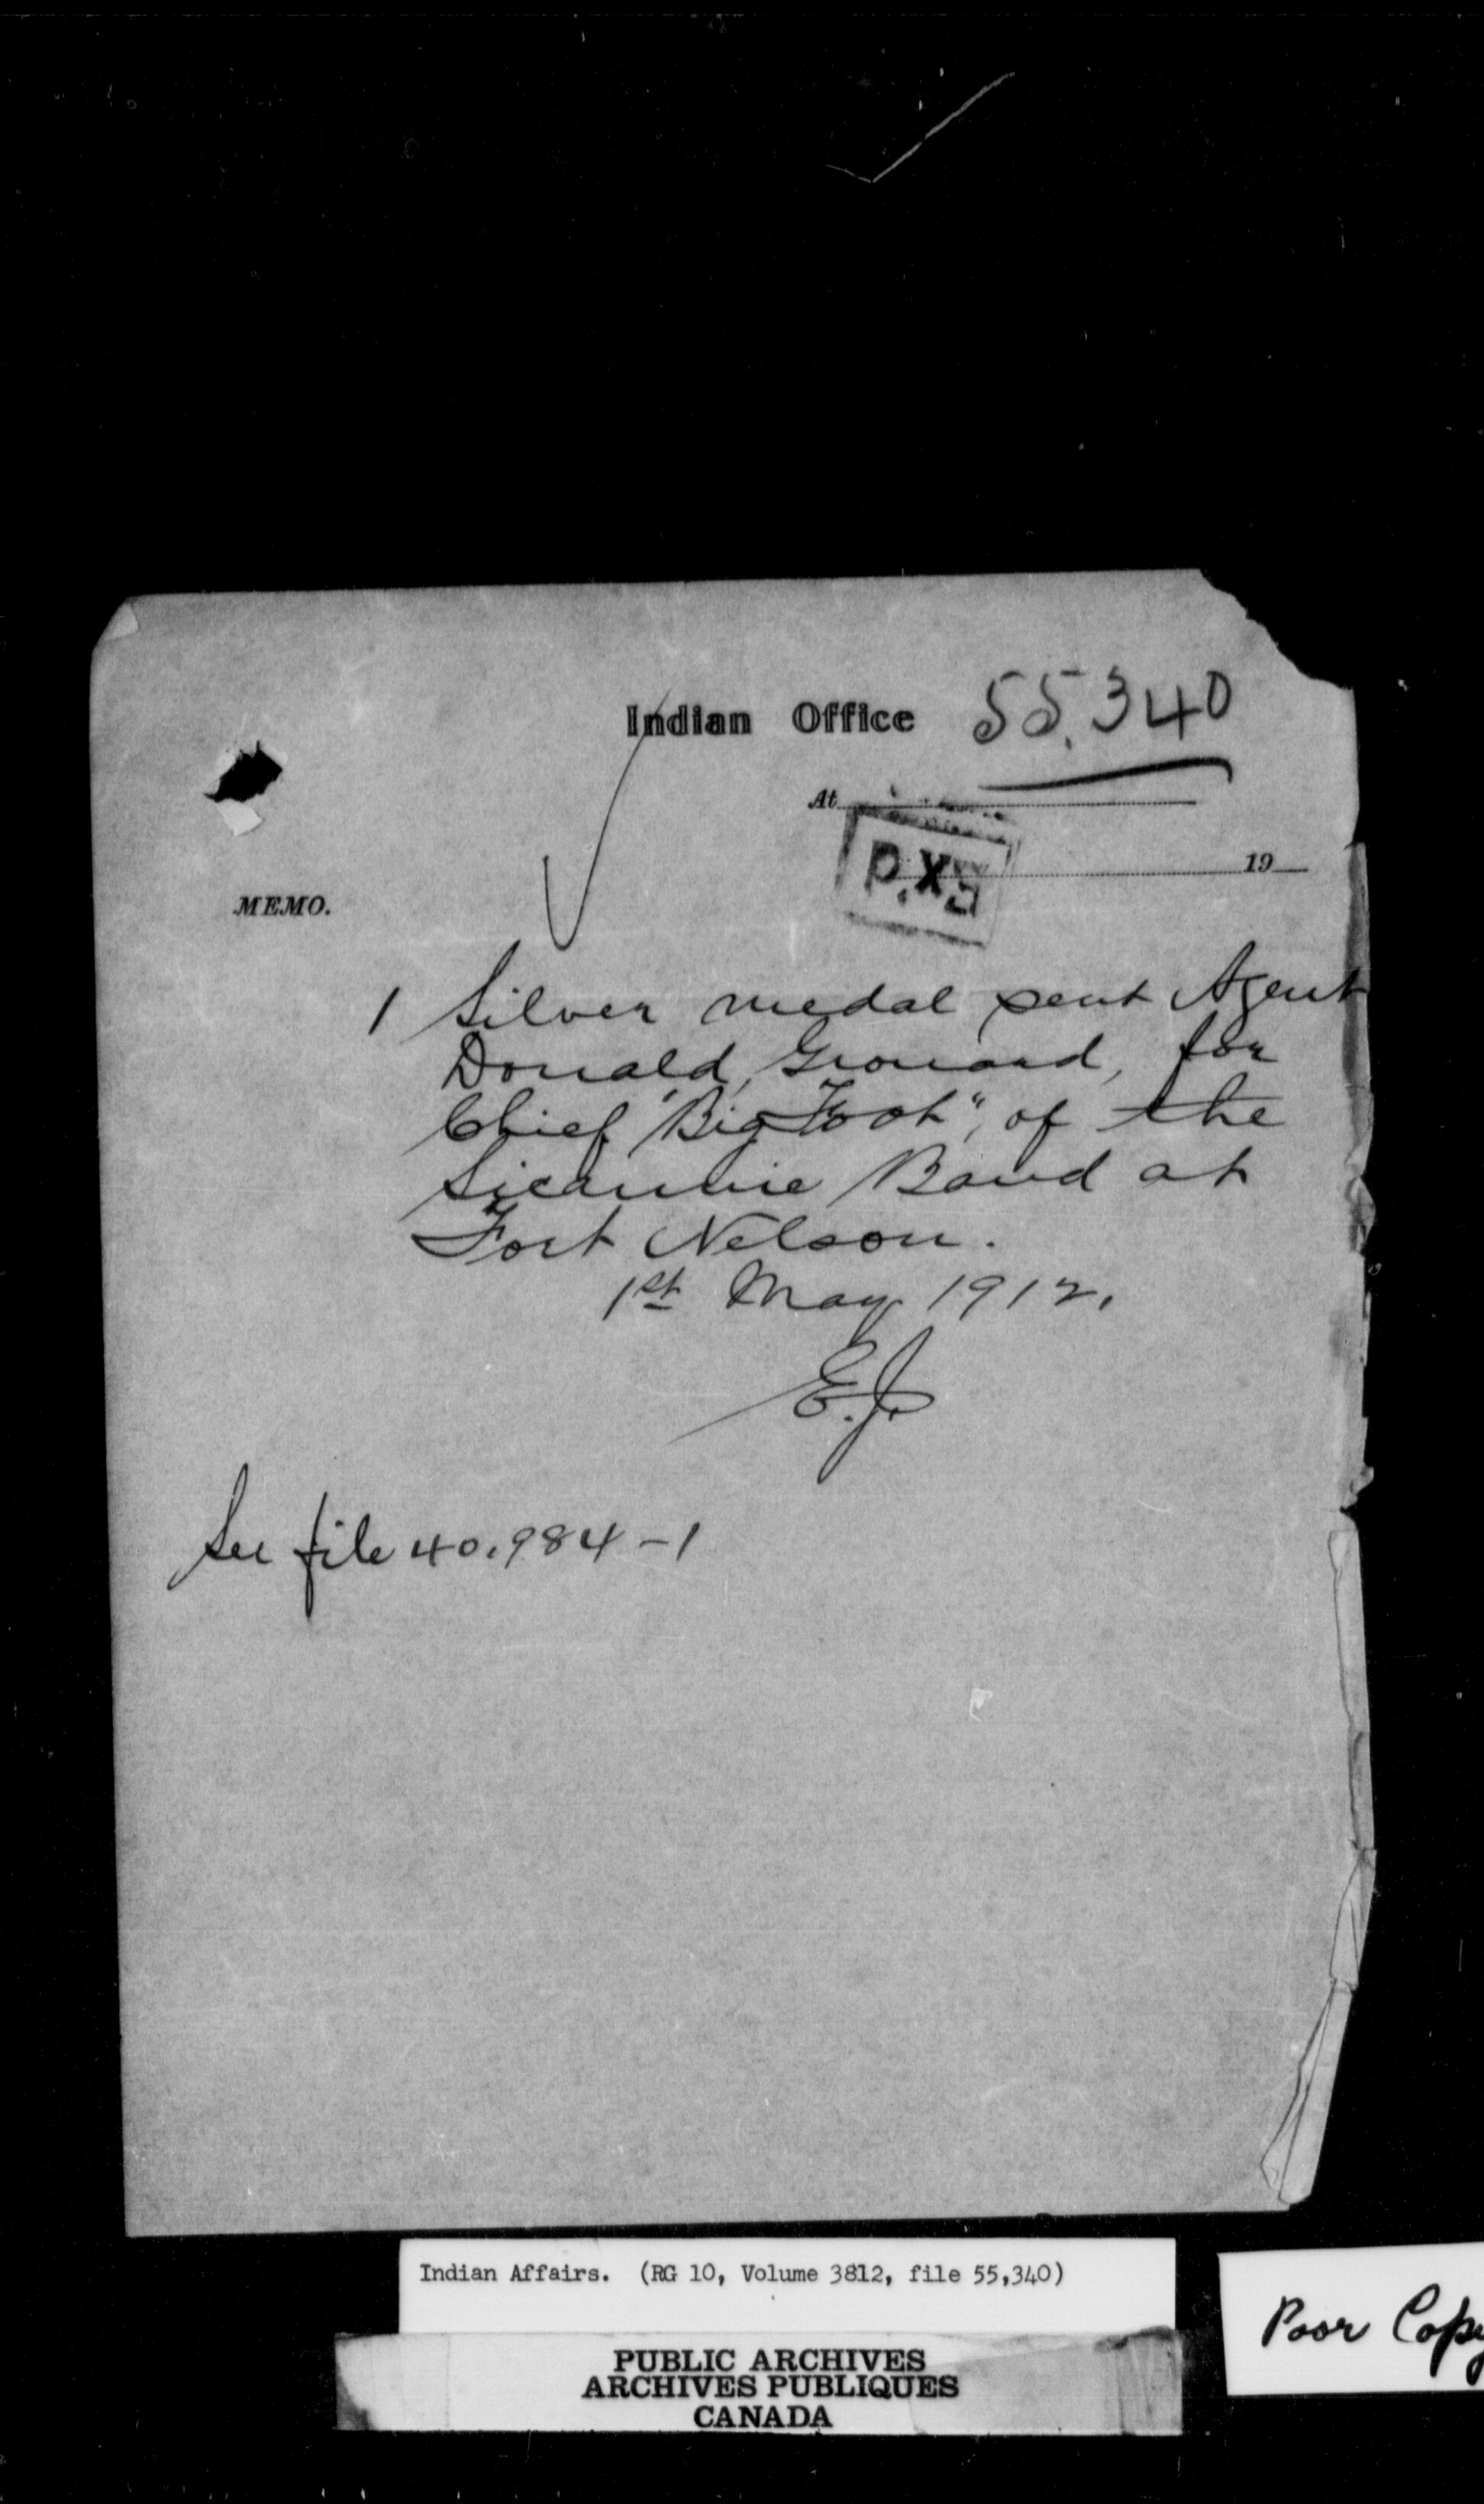 Indian Office 55,340
At
19
P.X.
MEMO.
1 Silver medal sent Agent
Donald, Grouard, for
Chief "Big Foot", of the
Sicannie Band at
Fort Nelson.
1st May 1912.
E.J.
See file 40,984-1
Indian Affairs. (RG 10, Volume 3812, file 55,340)
PUBLIC ARCHIVES
ARCHIVES PUBLIQUES
CANADA
Poor Copy